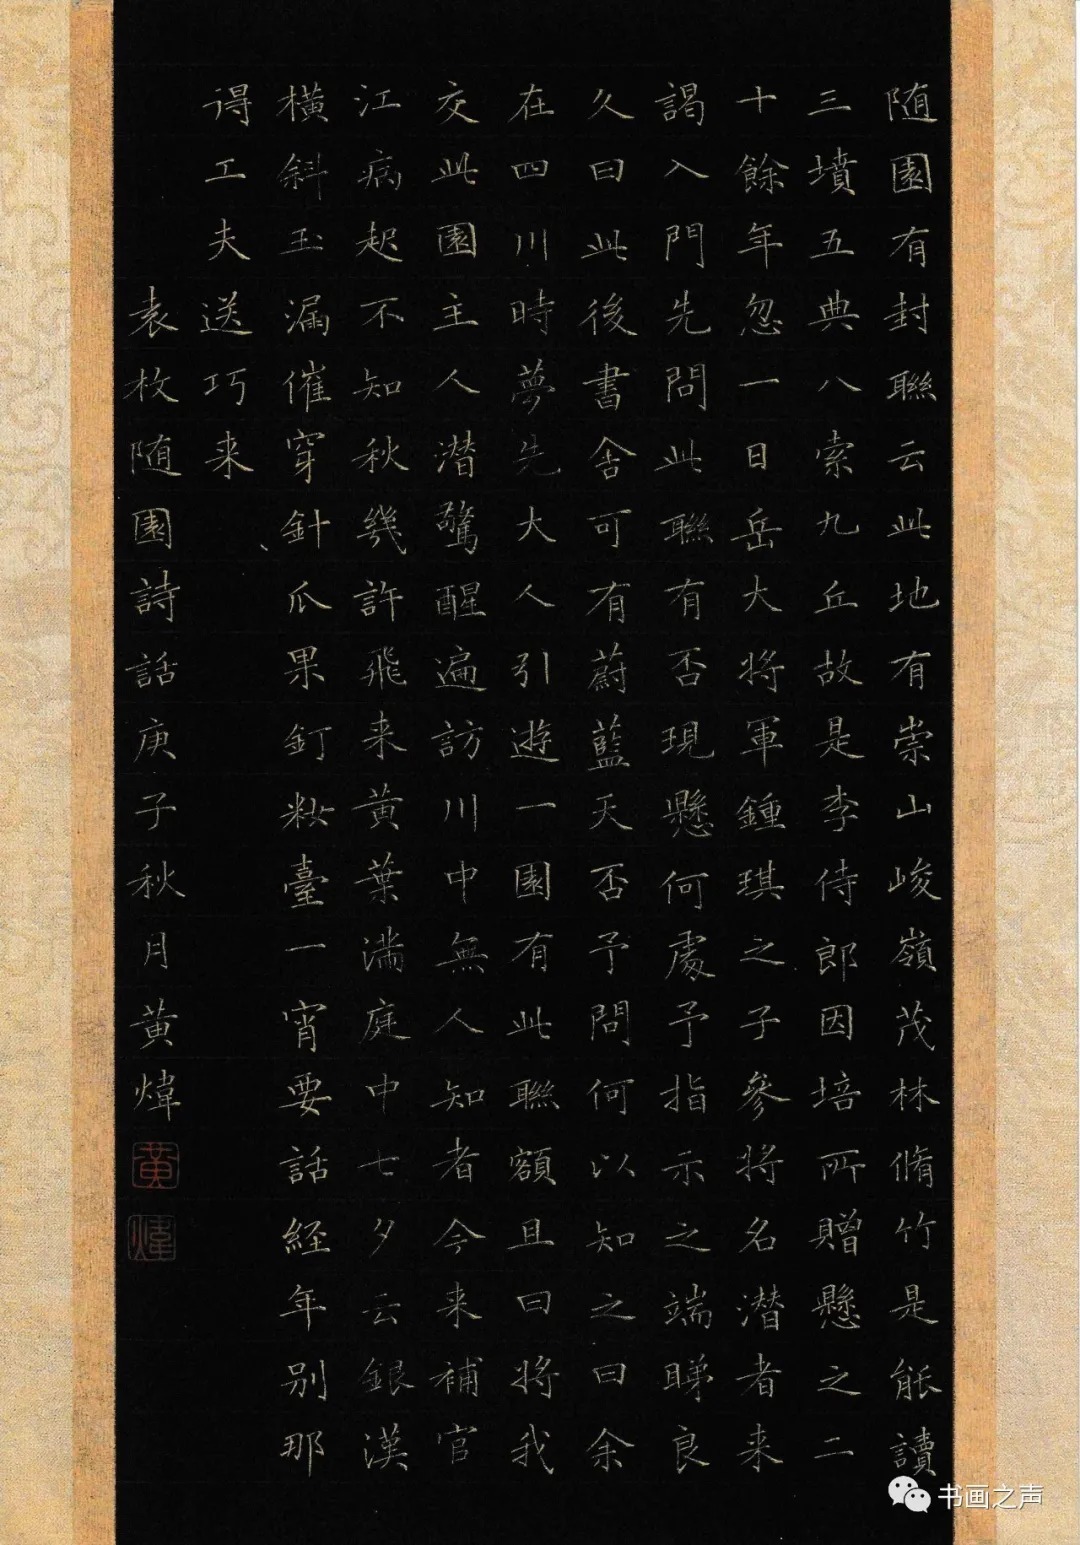 随園有封聯云此地有崇山峻嶺茂林脩竹是能讀
三墳五典八索九丘故是李侍郎因培所贈懸之二
十餘年忽一日岳大将軍鍾琪之子參将名潜者来
謁入門先問此聯有否現懸何處予指示之端睇良
久曰此後書舍可有蔚藍天否予問何以知之曰余
在四川時夢先大人引遊一園有此聯額且曰将我
交此園主人潜驚醒遍訪川中無人知者今来補官
江病起不知秋幾許飛来黄葉満庭中七夕云銀漢
橫斜玉漏催穿針瓜果飣粧臺一宵要話経年別那
得工夫送巧来
袁枚随園詩話庚子秋月黄煒
黄
煒
书画之声